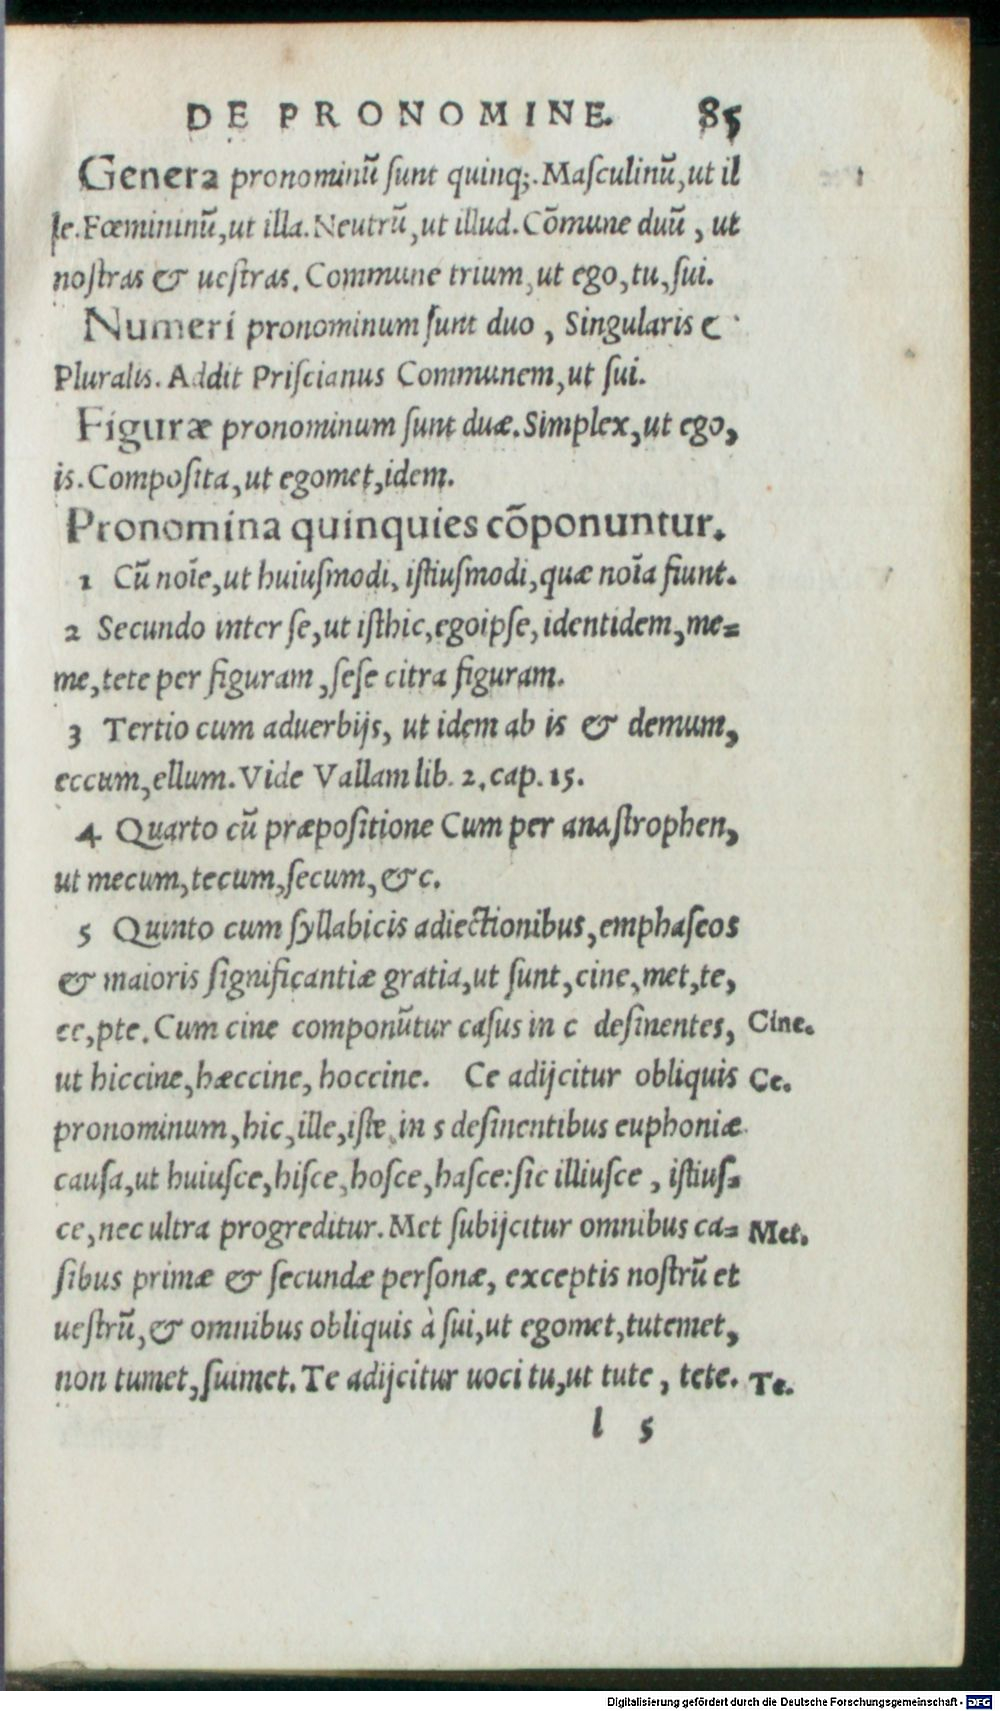 DE PRONOMINE. 85
Genera pronominū ſunt quinq;. Maſculinū, ut il
le. Fœmininū, ut illa. Neutrū, ut illud. Cōmune duū, ut
noſtras & ueſtras. Commune trium, ut ego, tu, ſui.
Numeri pronominum ſunt duo, Singularis &
Pluralis. Addit Priſcianus Communem, ut ſui.
Figuræ pronominum ſunt duæ. Simplex, ut ego,
is. Compoſita, ut egomet, idem.
Pronomina quinquies cōponuntur.
1 Cū noīe, ut huiuſmodi, iſtiuſmodi, quæ noīa fiunt.
2 Secundo inter ſe, ut iſthic, egoipſe, identidem, me=
me, tete per figuram, ſeſe citra figuram.
3 Tertio cum aduerbijs, ut idem ab is & demum,
eccum, ellum. Vide Vallam lib. 2. cap. 15.
4 Quarto cū præpoſitione Cum per anaſtrophen,
ut mecum, tecum, ſecum, &c.
5 Quinto cum ſyllabicis adiectionibus, emphaſeos
& maioris ſignificantiæ gratia, ut ſunt, cine, met, te,
ce, pte. Cum cine componūtur caſus in c deſinentes, Cine.
ut hiccine, hæccine, hoccine. Ce adijcitur obliquis Ce.
pronominum, hic, ille, iſte, in s deſinentibus euphoniæ
cauſa, ut huiuſce, hiſce, hoſce, haſce: ſic illiuſce, iſtiuſ=
ce, nec ultra progreditur. Met ſubijcitur omnibus ca= Met.
ſibus primæ & ſecundæ perſonæ, exceptis noſtrū et
ueſtrū, & omnibus obliquis à ſui, ut egomet, tutemet,
non tumet, ſuimet. Te adijcitur uoci tu, ut tute, tete. Te.
l 5
Digitalisierung gefördert durch die Deutsche Forschungsgemeinschaft - DFG